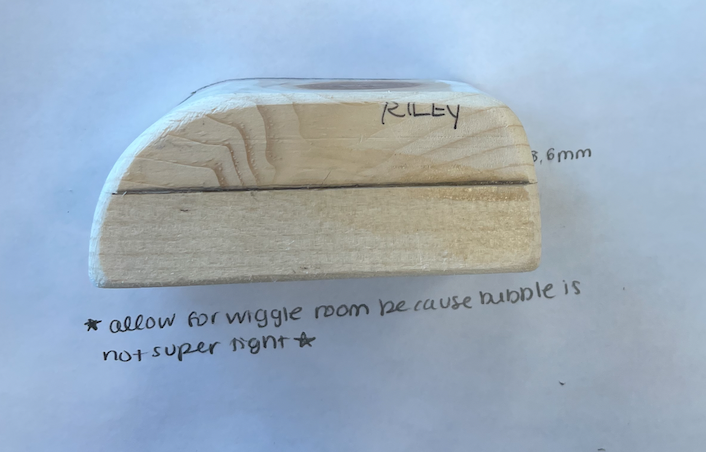 RILEY
3,6mm
* allow for wiggle room because bubble is
not super tight *